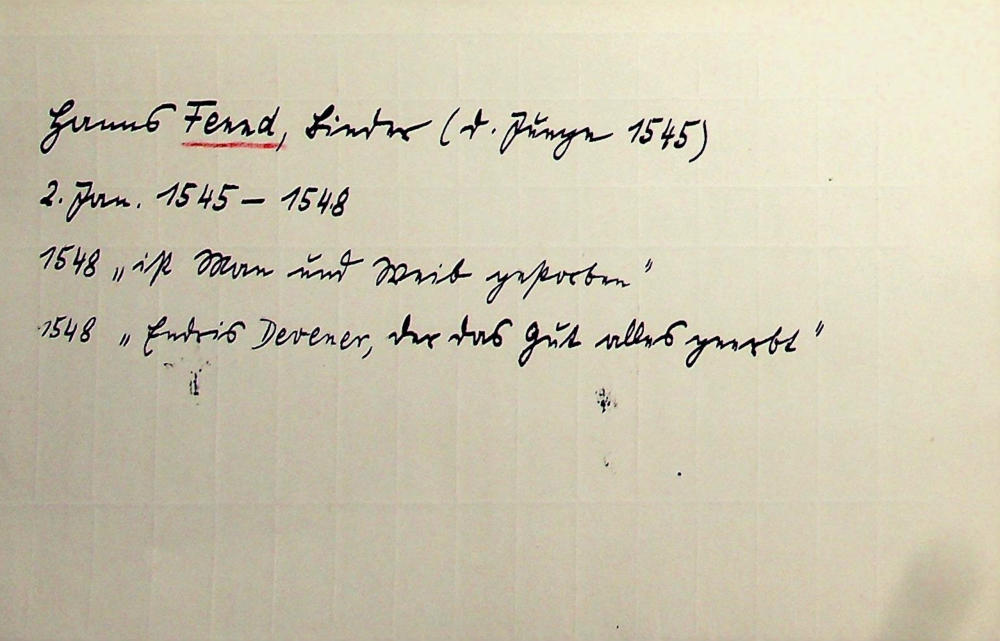 Hanns Fennd, Binder (d. Junge 1545)
2. Jan. 1545 – 1548
1548 „ist Man und Weib gestorben"
1548 „Endris Devener, der das Gut alles geerbt"